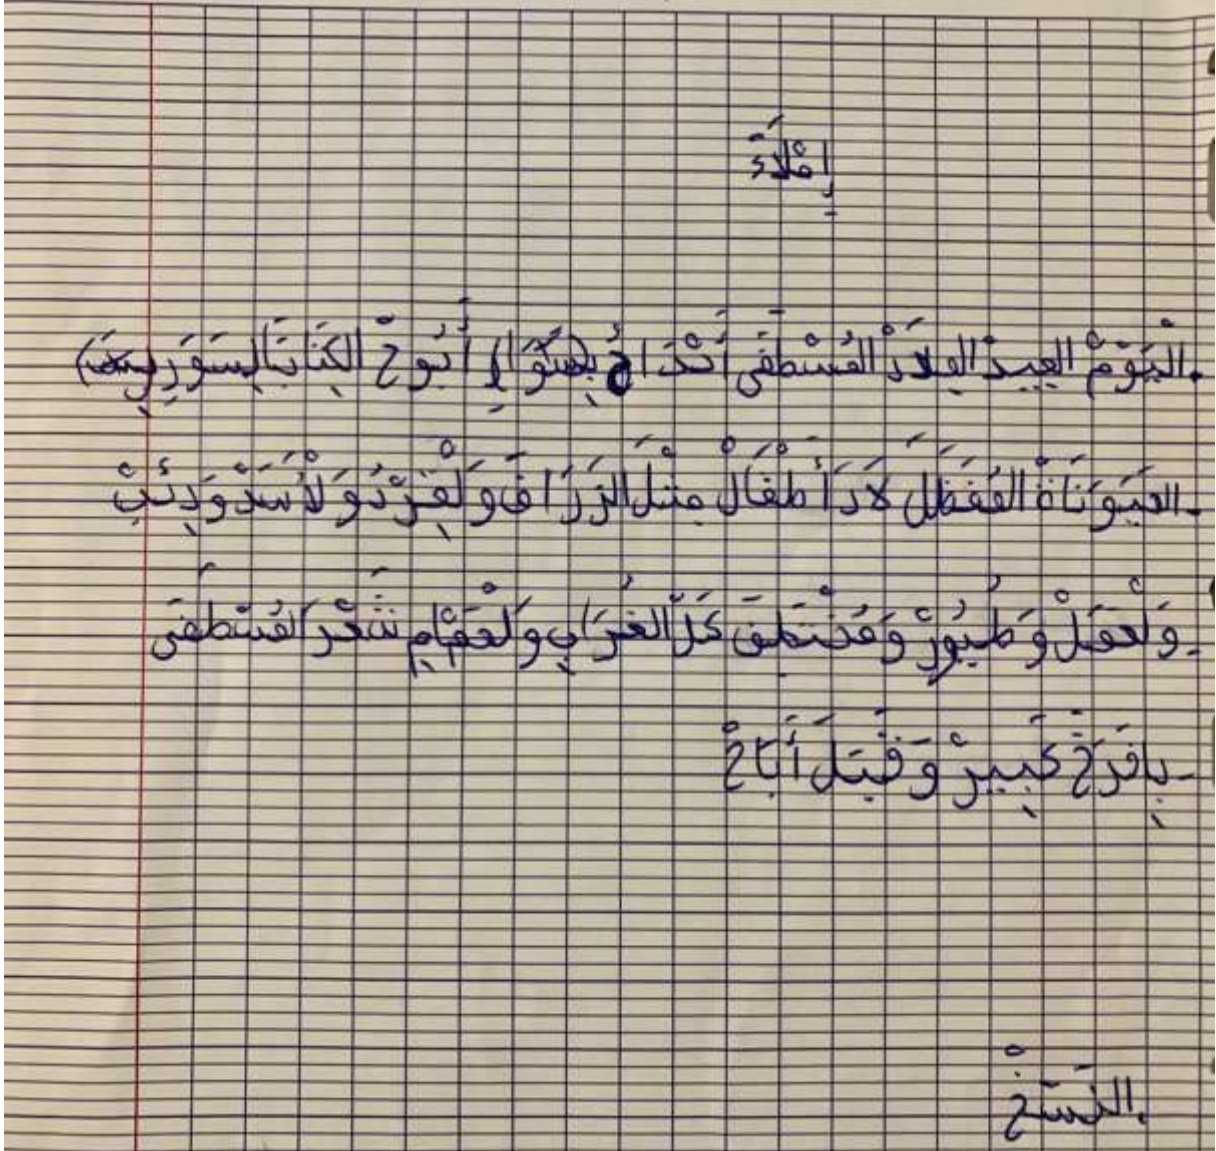 إمْلَاءَ
.اليَوْمْ العِيدْ المِلَادْ المُسْطَفَى أَبُوحْ الكِتَابَا
-الحَيَوَنَاةْ المُفَظَلْ لَادَ أَطْفَالْ مِتْلَ الزَرَافَ وَلْقِرْدُ وَلْأَسَدْ وَدِئْبْ
-وَلْحَمَلْ وَطُيُورْ وَمُخْتَطِفَ كَلْ الغُرَابِ وَلْحَمَامِ شَعْرَ المُسْطَفَى
-بِافَرَحْ كَبِيرْ وَقَبَلَ أَبَاحْ
.النَسَخْ